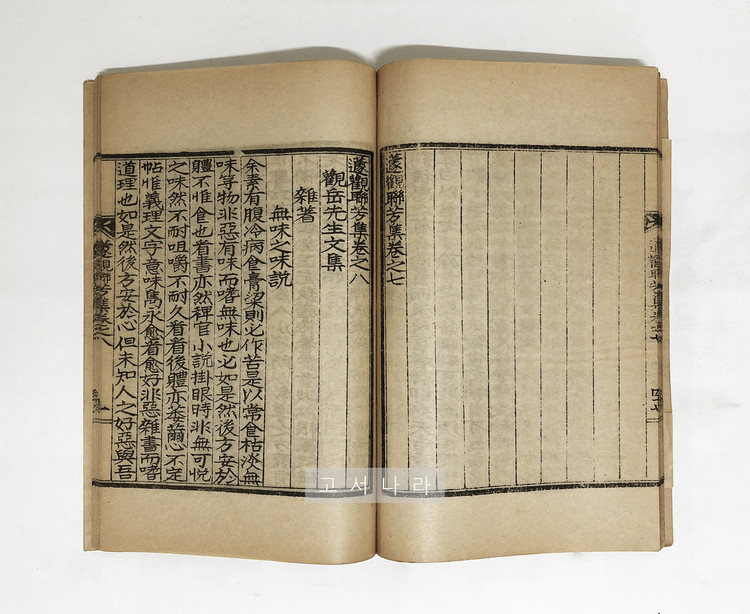 邃觀聯芳集卷之七
四十七
邃觀聯芳集卷之七
邃觀聯芳集卷之八
觀岳先生文集
雜著
無味之味說
余素有腹冷病食膏梁則必作苦是以常食枯淡無
味等物非惡有味而嗜無味也必如是然後方安於
體不惟食也看書亦然稗官小說掛眼時非無可悅
之味然不耐咀嚼不耐久看看後體亦荼薾心不定
帖惟義理文字意味雋永愈看愈好非惡雜書而嗜
道理也如是然後方安於心但未知人之好惡與吾
邃觀聯芳集卷之八
一
고서나라